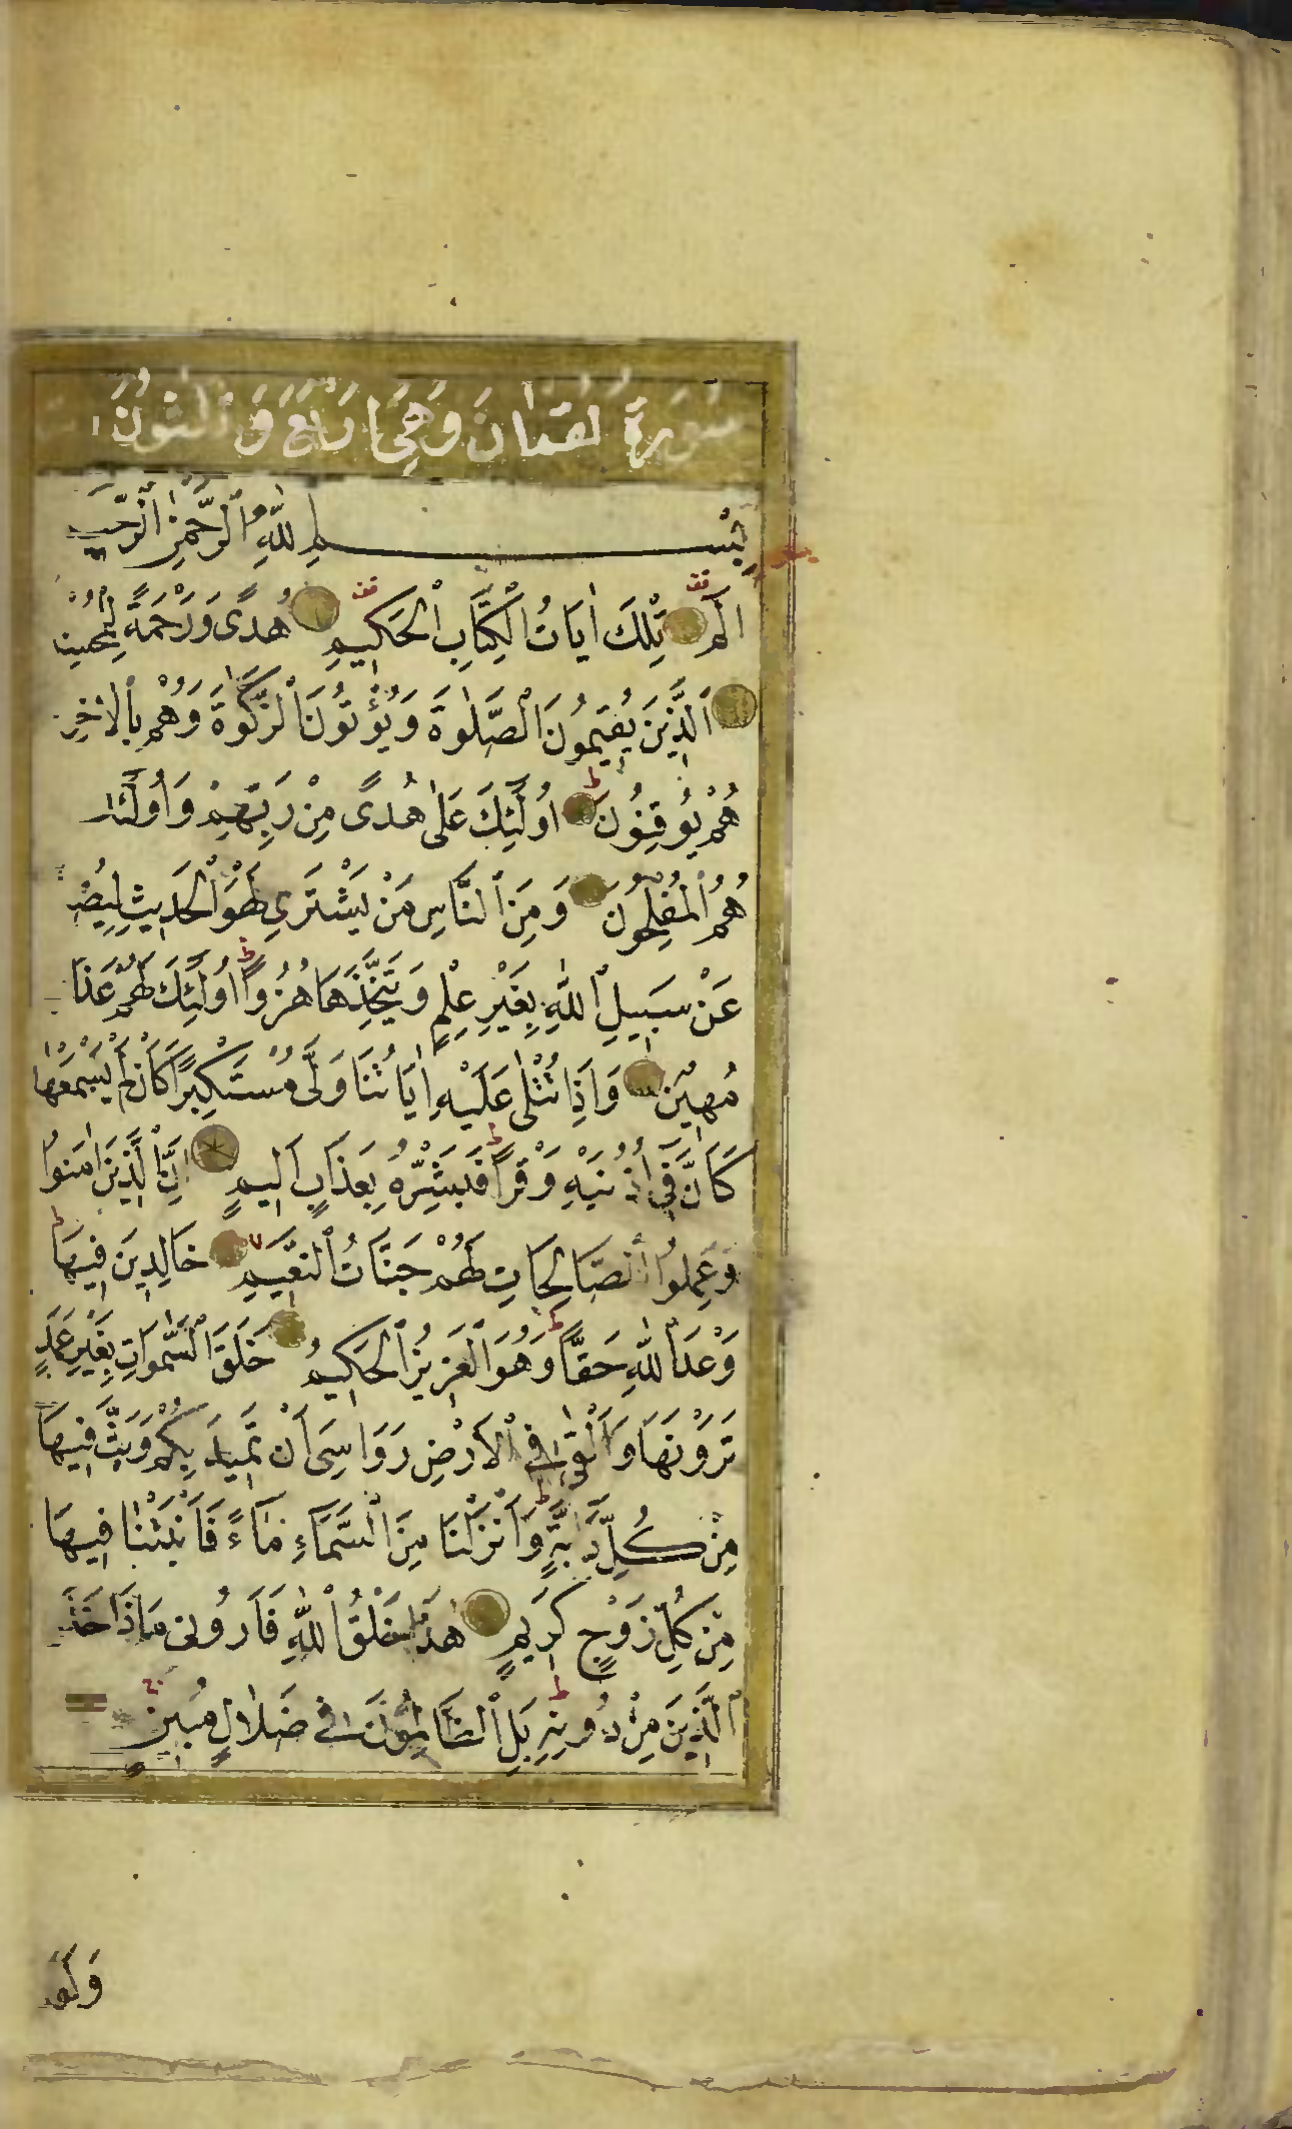 سُورَةُ لُقْمَانَ وَهِيَ اَرْبَعٌ وَثَلٰثُونَ
بِسْمِ ٱللّٰهِ ٱلرَّحْمٰنِ ٱلرَّحِيـ
الٓمٓ تِلْكَ اٰيَاتُ الْكِتَابِ ٱلْحَكِيمِ هُدًى وَرَحْمَةً لِلْمُحْسِنِينَ
اَلَّذِينَ يُقِيمُونَ ٱلصَّلٰوةَ وَيُؤْتُونَ ٱلزَّكٰوةَ وَهُمْ بِٱلْاٰخِرَ
هُمْ يُوقِنُونَ اُولٰٓئِكَ عَلٰى هُدًى مِنْ رَبِّهِمْ وَاُولٰٓئِكَ
هُمُ ٱلْمُفْلِحُونَ وَمِنَ ٱلنَّاسِ مَنْ يَشْتَرِي لَهْوَ ٱلْحَدِيثِ لِيُضِلَّ
عَنْ سَبِيلِ ٱللّٰهِ بِغَيْرِ عِلْمٍ وَيَتَّخِذَهَا هُزُوًا اُولٰٓئِكَ لَهُمْ عَذَا
مُهِينٌ وَاِذَا تُتْلٰى عَلَيْهِ اٰيَاتُنَا وَلّٰى مُسْتَكْبِرًا كَاَنْ لَمْ يَسْمَعْهَا
كَاَنَّ فِٓي اُذُنَيْهِ وَقْرًا فَبَشِّرْهُ بِعَذَابٍ اَلِيمٍ اِنَّ ٱلَّذِينَ اٰمَنُوا
وَعَمِلُوا ٱلصَّالِحَاتِ لَهُمْ جَنَّاتُ ٱلنَّعِيمِ خَالِدِينَ فِيهَا
وَعْدَ ٱللّٰهِ حَقًّا وَهُوَ ٱلْعَزِيزُ ٱلْحَكِيمُ خَلَقَ ٱلسَّمٰوَاتِ بِغَيْرِ عَمَدٍ
تَرَوْنَهَا وَاَلْقٰى فِي ٱلْاَرْضِ رَوَاسِيَ اَنْ تَمِيدَ بِكُمْ وَبَثَّ فِيهَا
مِنْ كُلِّ دَٓابَّةٍ وَاَنْزَلْنَا مِنَ ٱلسَّمَٓاءِ مَٓاءً فَاَنْبَتْنَا فِيهَا
مِنْ كُلِّ زَوْجٍ كَرِيمٍ هٰذَا خَلْقُ ٱللّٰهِ فَاَرُونِي مَاذَا خَلَقَ
ٱلَّذِينَ مِنْ دُونِهِ بَلِ ٱلظَّالِمُونَ فِي ضَلَالٍ مُبِينٍ
وَلَقَ